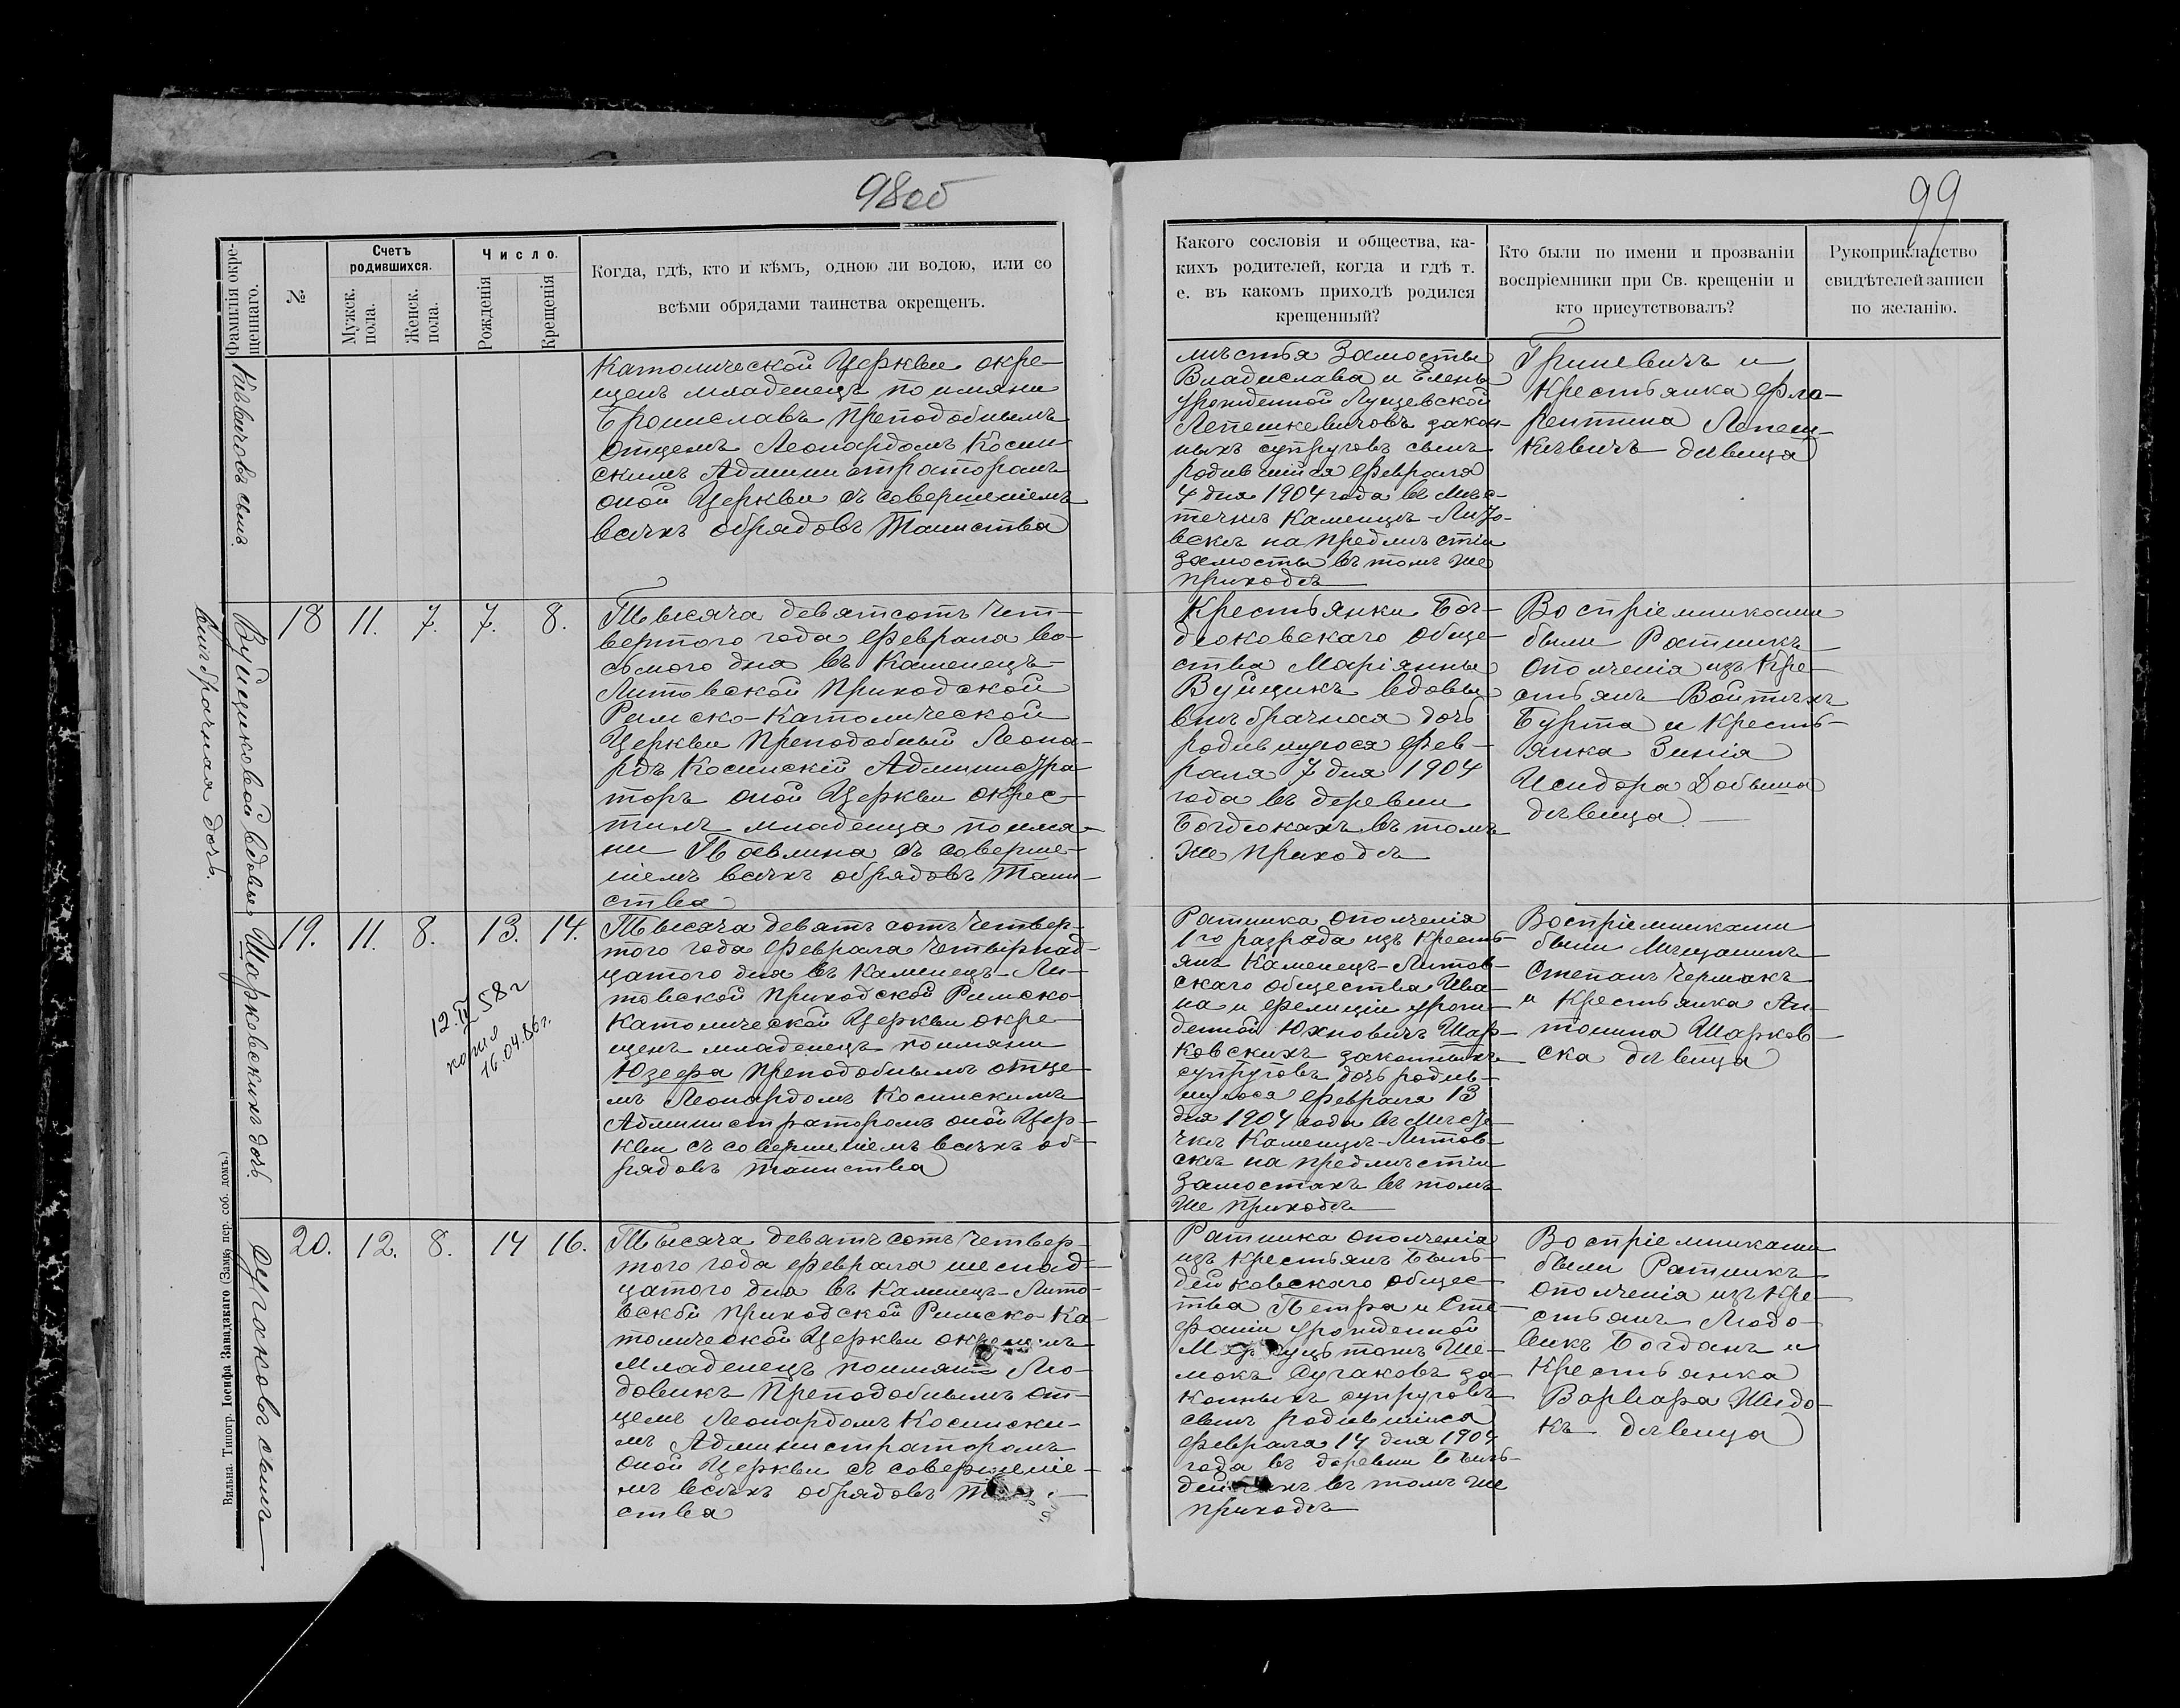 98об
Фамилія окре-
щеннаго.
№
Счетъ
родившихся.
Мужск.
пола.
Женск.
пола.
Число.
Рожденія
Крещенія
Когда, гдѣ, кто и кѣмъ, одною ли водою, или со
всѣми обрядами таинства окрещенъ.
Кѣвичовъ сынъ.
Католической Церкви окре-
щенъ младенецъ по имяни
Брониславъ Преподобнымъ
Отцемъ Леонардомъ Косин-
скимъ Администраторамъ
оной Церкви съ совершеніемъ
всѣхъ обрядовъ Таинства
Вуйциковой вдовы
внѣбрачная дочь.
18
11.
7.
7.
8.
Тысяча девятсотъ чет-
вертого года Февраля во-
сьмого дня въ Каменецъ-
Литовской Приходской
Римско-Католической
Церкви Преподобный Леона-
рдъ Косинскій Администра
торъ оной Церкви окрес-
тилъ младенца по имя-
ни Павлина съ соверше-
ніемъ всѣхъ обрядовъ Таин-
ства
Шарковскихъ дочь.
19.
11.
8.
13.
14.
12.IV 58 г
копия
16.04.86г.
Тысяча девять сотъ четвер-
того года Февраля четырнад-
цатого дня въ Каменецъ-Ли-
товской Приходской Римско-
Католической Церкви окре-
щенъ младенецъ по имяни
Юзефа Преподобнымъ отце-
мъ Леонардомъ Косинскимъ
Администраторомъ оной Цер-
кви съ совершеніемъ всѣхъ об-
рядовъ таинства
Сугаковъ сынъ
20.
12.
8.
14
16.
Тысяча девять сотъ четвер-
того года Февраля шеснад-
цатого дня въ Каменецъ-Лито-
вской Приходской Римско-Ка-
толической Церкви окрещенъ
Младенецъ по имяни Лю-
довикъ Преподобнымъ от-
цемъ Леонардомъ Косински-
мъ Администраторомъ
оной Церкви съ совершеніе-
мъ всѣхъ обрядовъ
ства
Вильна. Типогр. Іосифа Завадзкаго (Замк. пер. соб. домъ.)
99
Какого сословія и общества, ка-
кихъ родителей, когда и гдѣ т.
е. въ какомъ приходѣ родился
крещенный?
Кто были по имени и прозваніи
воспріемники при Св. крещеніи и
кто присутствовалъ?
Рукоприкладство
свидѣтелей записи
по желанію.
мѣстья Замосты
Владислава и Елены
урожденной Лущевской
Лепешкевичовъ закон-
ныхъ супруговъ сынъ
родившійся Февраля
4 дня 1904 года въ Мѣс-
течкѣ Каменцѣ-Лито-
вскѣ на предмѣстіи
Замосты въ томъ же
приходѣ
Гриневичъ и
Крестьянка Фло-
рентина Лепеш-
кѣвичъ дѣвица
Крестьянки Бог-
дюковскаго обще-
ства Маріянны
Вуйцикъ вдовы
внѣбрачная дочь
родившуюся Фев-
раля 7 дня 1904
года въ деревни
Богдюкахъ въ томъ
же приходѣ
Воспріемниками
были Ратникъ
ополченія изъ Кре-
стьянъ Войтѣхъ
Бурта и Кресть-
янка Зинія
Исидора Добыша
дѣвица.
Ратника ополченія
1го разряда изъ кресть-
янъ Каменецъ-Литов-
скаго общества Ива-
на и Фелиціи урож-
денной Юхновичъ Шар-
ковскихъ законныхъ
супруговъ дочь родив-
шуюся Февраля 13
дня 1904 года въ Мѣсте-
чкѣ Каменцѣ-Литов-
скѣ на предмѣстіи
Замостахъ въ томъ
же приходѣ
Воспріемниками
были Мѣщанинъ
Степанъ Чермакъ
и Крестьянка Ан-
тонина Шарков-
ска дѣвица
Ратника ополченія
изъ крестьянъ Бѣль-
дейковскаго общес-
тва Петра и Сте-
фаніи урожденной
томъ Ше-
мокъ Сугаковъ за-
конныхъ супруговъ
сынъ родившійся
Февраля 14 дня 1904
года въ деревни Бѣль-
въ томъ же
приходѣ
Воспріемниками
были Ратникъ
ополченія изъ Кре-
стьянъ Людо-
викъ Богданъ и
Крестьянка
Варвара Шидо-
къ дѣвица